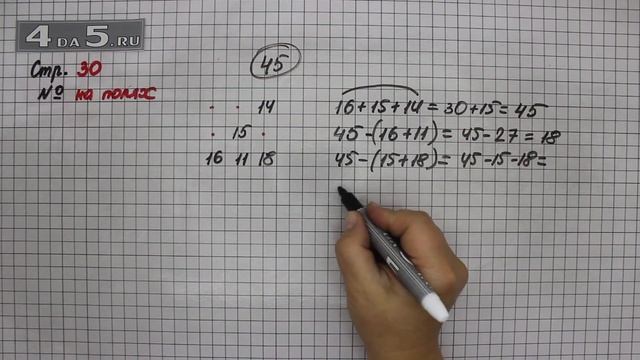 4 DA 5.RU
Стр. 30
№ на полях
45
. . 14
. 15 .
16 11 18
16+15+14=30+15=45
45-(16+11)=45-27=18
45-(15+18)=45-15-18=